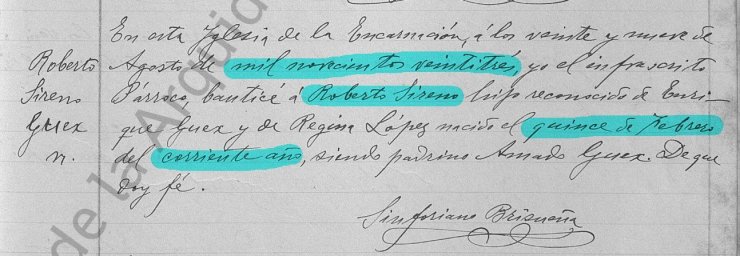 En esta Iglesia de la Encarnación, á los veinte y nueve de
Roberto Agosto de mil novecientos veintitrés, yo el infrascrito
Sireno Párroco, bauticé á Roberto Sireno hijo reconocido de Enri-
Guex que Guex y de Regina López nacido el quince de Febrero
n. del corriente año, siendo padrino Amado Guex. De que
doy fé.
Sinforiano Brisueña
de la Arquid